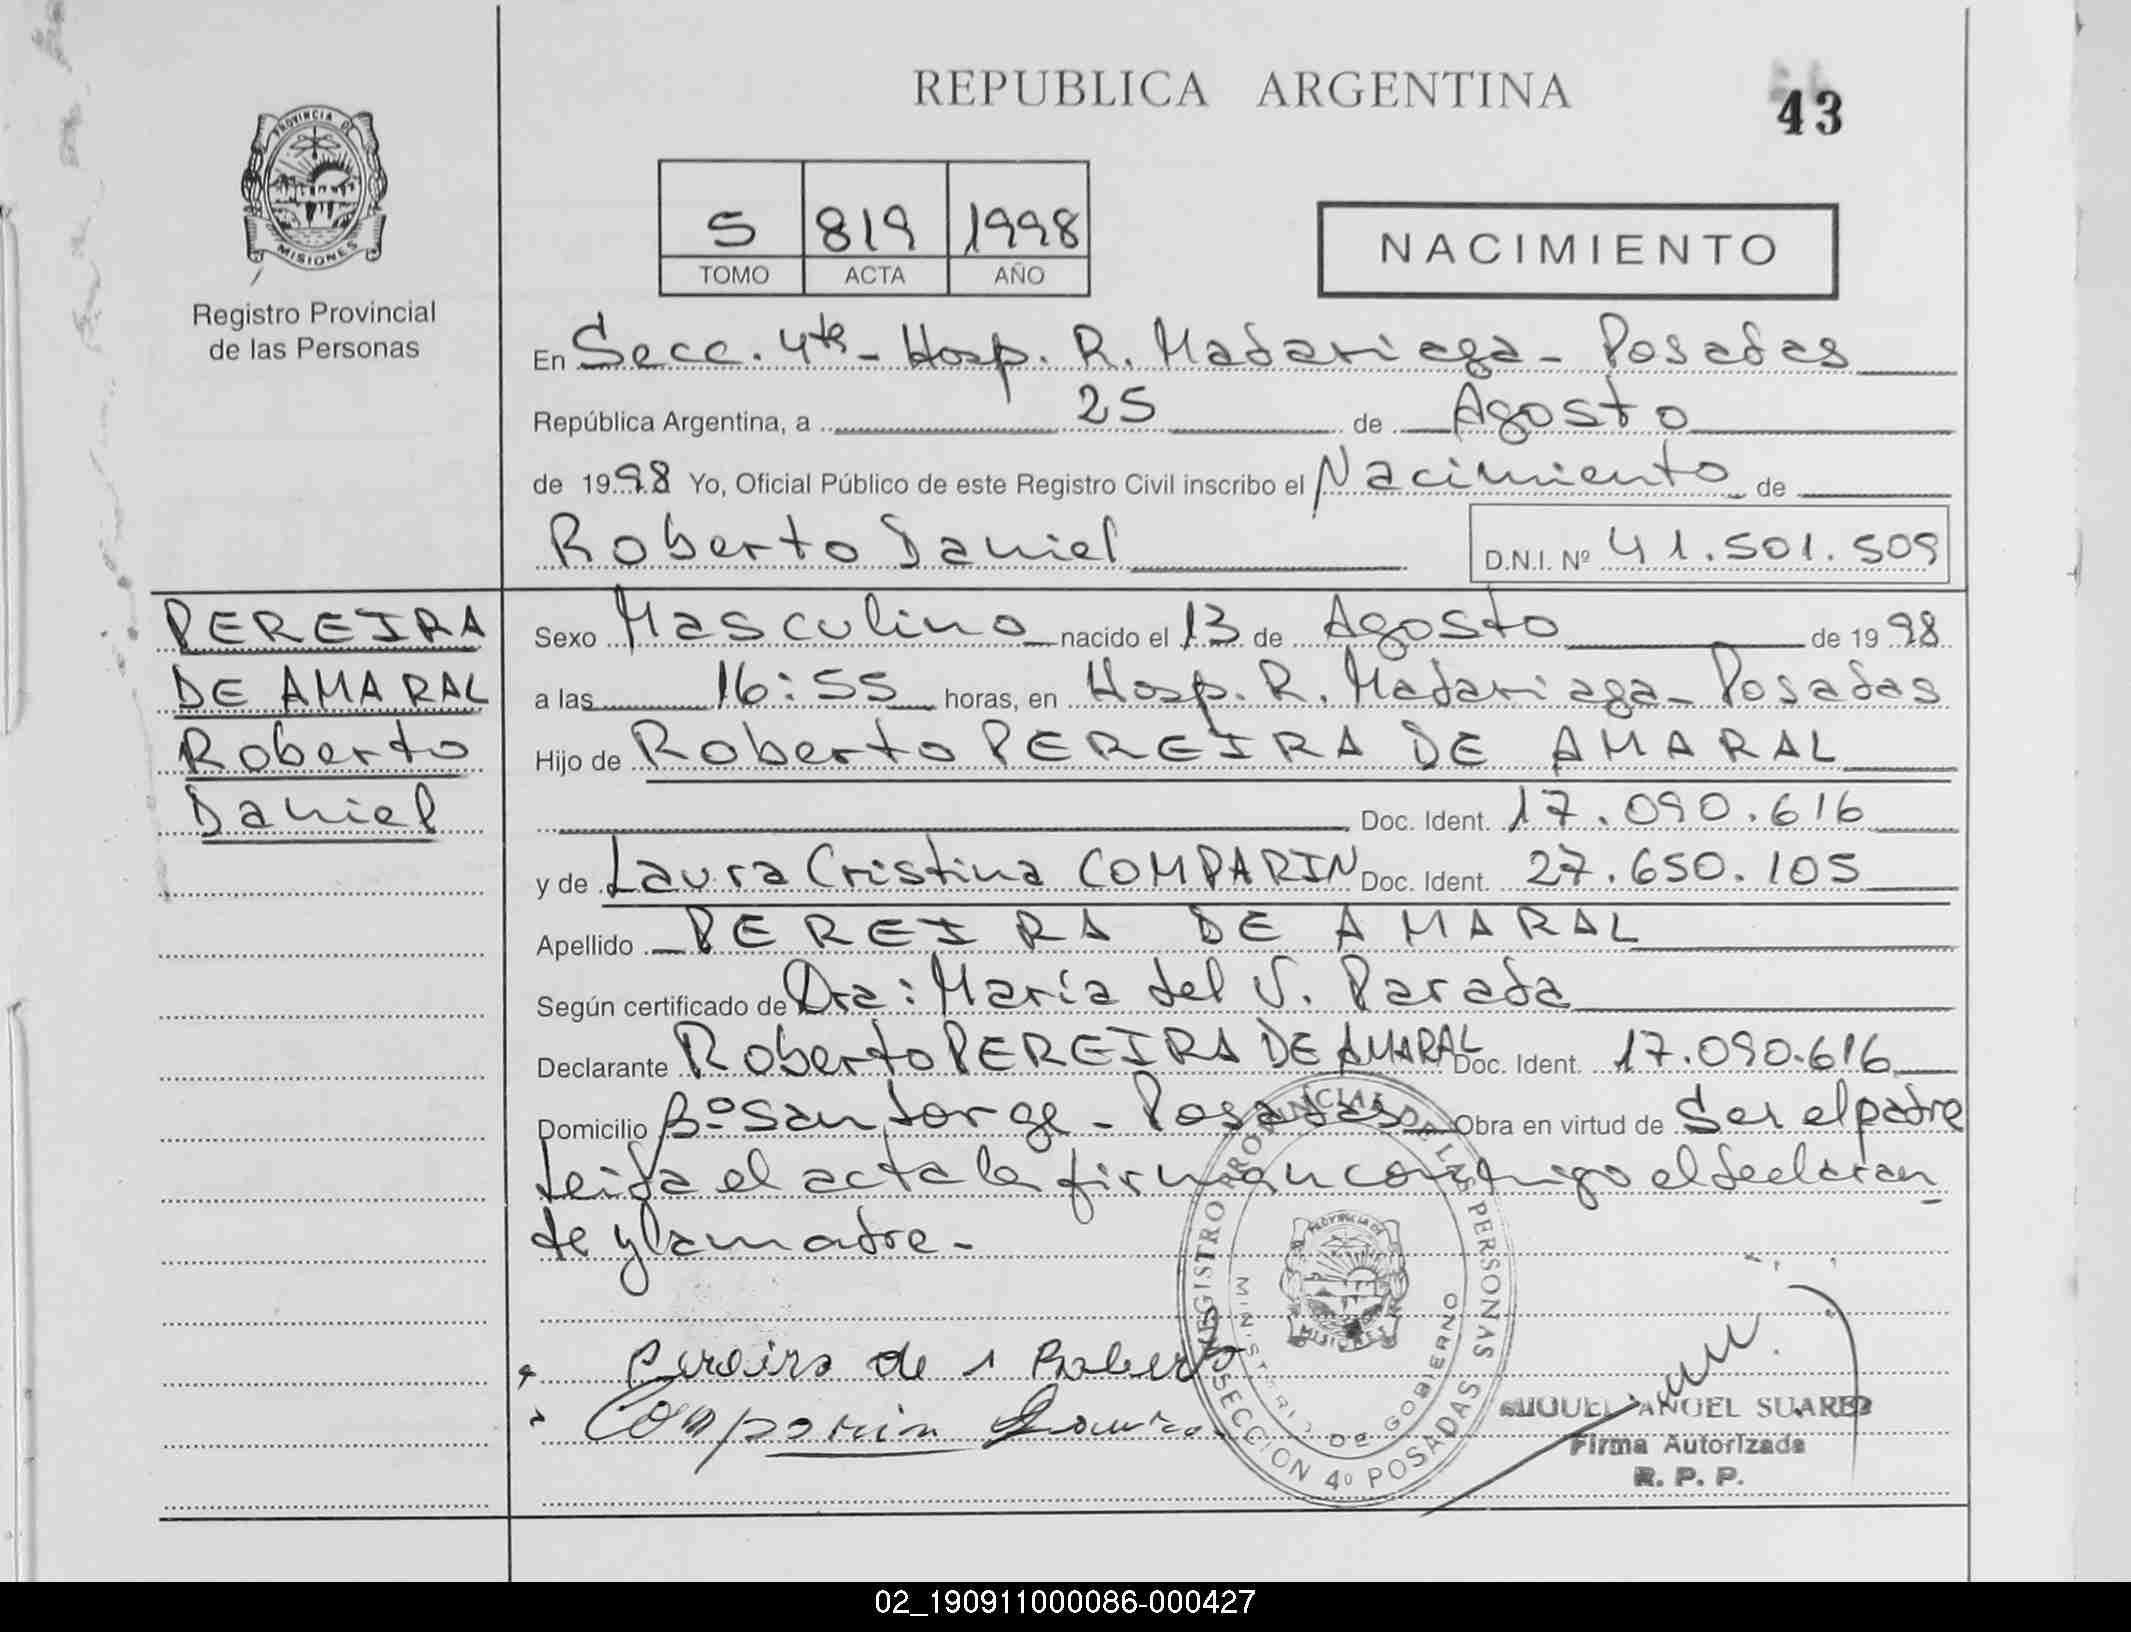 REPUBLICA ARGENTINA
43
PROVINCIA DE
MISIONES
Registro Provincial
de las Personas
5 819 1998
TOMO ACTA AÑO
NACIMIENTO
En Secc. 4ta - Hosp. R. Madariaga - Posadas
República Argentina, a 25 de Agosto
de 1998 Yo, Oficial Público de este Registro Civil inscribo el Nacimiento de
Roberto Daniel D.N.I. Nº 41.501.509
PEREIRA
DE AMARAL
Roberto
Daniel
Sexo Masculino nacido el 13 de Agosto de 1998
a las 16:55 horas, en Hosp. R. Madariaga - Posadas
Hijo de Roberto PEREIRA DE AMARAL
Doc. Ident. 17.090.616
y de Laura Cristina COMPARIN Doc. Ident. 27.650.105
Apellido PEREIRA DE AMARAL
Según certificado de Dra: María del V. Parada
Declarante Roberto PEREIRA DE AMARAL Doc. Ident. 17.090.616
Domicilio Bº San Jorge - Posadas Obra en virtud de Ser el padre
Leida el acta la firman conmigo el declaran
te y la madre -
Pereira de A Roberto
Comparin Laura
REGISTRO PROVINCIAL DE LAS PERSONAS
SECCION 4º POSADAS
MINISTERIO DE GOBIERNO
PROVINCIA DE
MISIONES
MIGUEL ANGEL SUAREZ
Firma Autorizada
R. P. P.
02_190911000086-000427